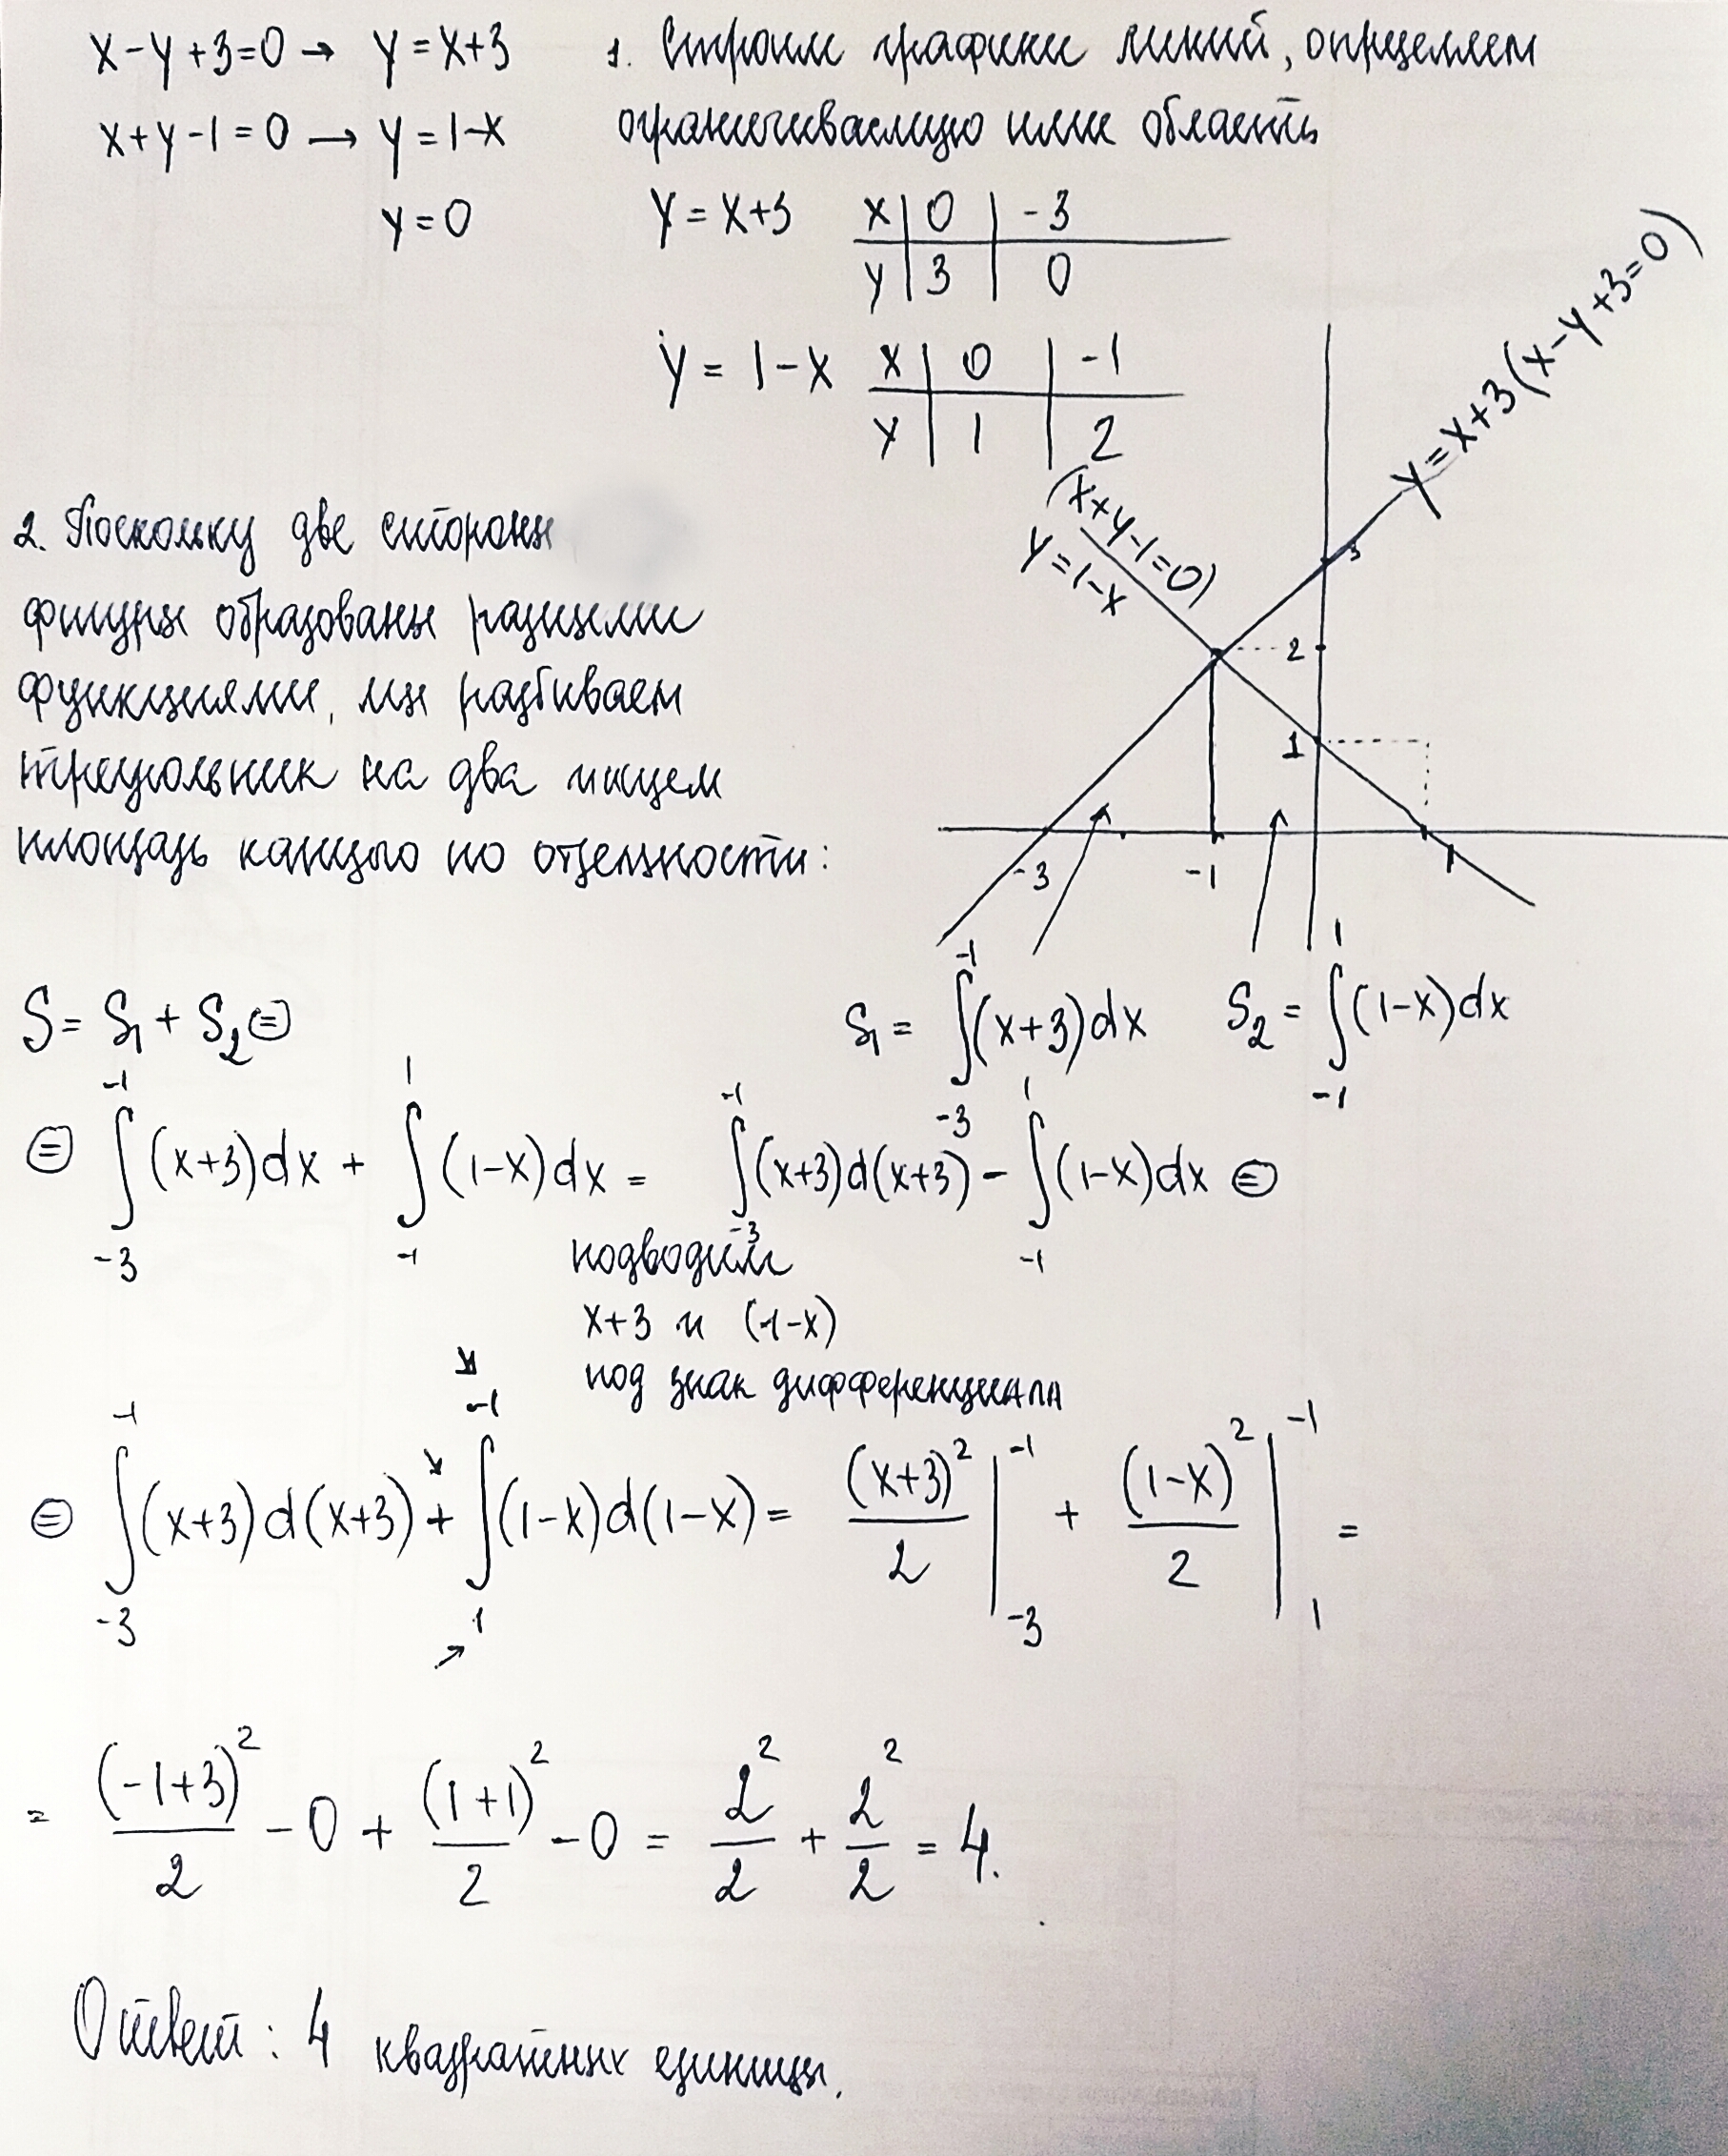 x-y+3=0 → y=x+3
x+y-1=0 → y=1-x
y=0
1. Строим графики линий, определяем
ограничиваемую ими область
y=x+3
x | 0 | -3
y | 3 | 0
y = 1-x
x | 0 | -1
y | 1 | 2
y=x+3 (x-y+3=0)
(x+y-1=0)
y=1-x
3
2
1
-3
-1
1
2. Поскольку две стороны
фигуры образованы разными
функциями, мы разбиваем
треугольник на два ищем
площадь каждого по отдельности:
S₁ = ∫₋₃⁻¹ (x+3)dx
S₂ = ∫₋₁¹ (1-x)dx
S = S₁ + S₂ ⊜
⊜ ∫₋₃⁻¹ (x+3)dx + ∫₋₁¹ (1-x)dx = ∫₋₃⁻¹ (x+3)d(x+3) - ∫₋₁¹ (1-x)dx ⊜
подводим
x+3 и (1-x)
под знак дифференциала
⊜ ∫₋₃⁻¹ (x+3)d(x+3) + ∫₁⁻¹ (1-x)d(1-x) = (x+3)²/2 |₋₃⁻¹ + (1-x)²/2 |₁⁻¹ =
= (-1+3)²/2 - 0 + (1+1)²/2 - 0 = 2²/2 + 2²/2 = 4.
Ответ: 4 квадратных единицы.